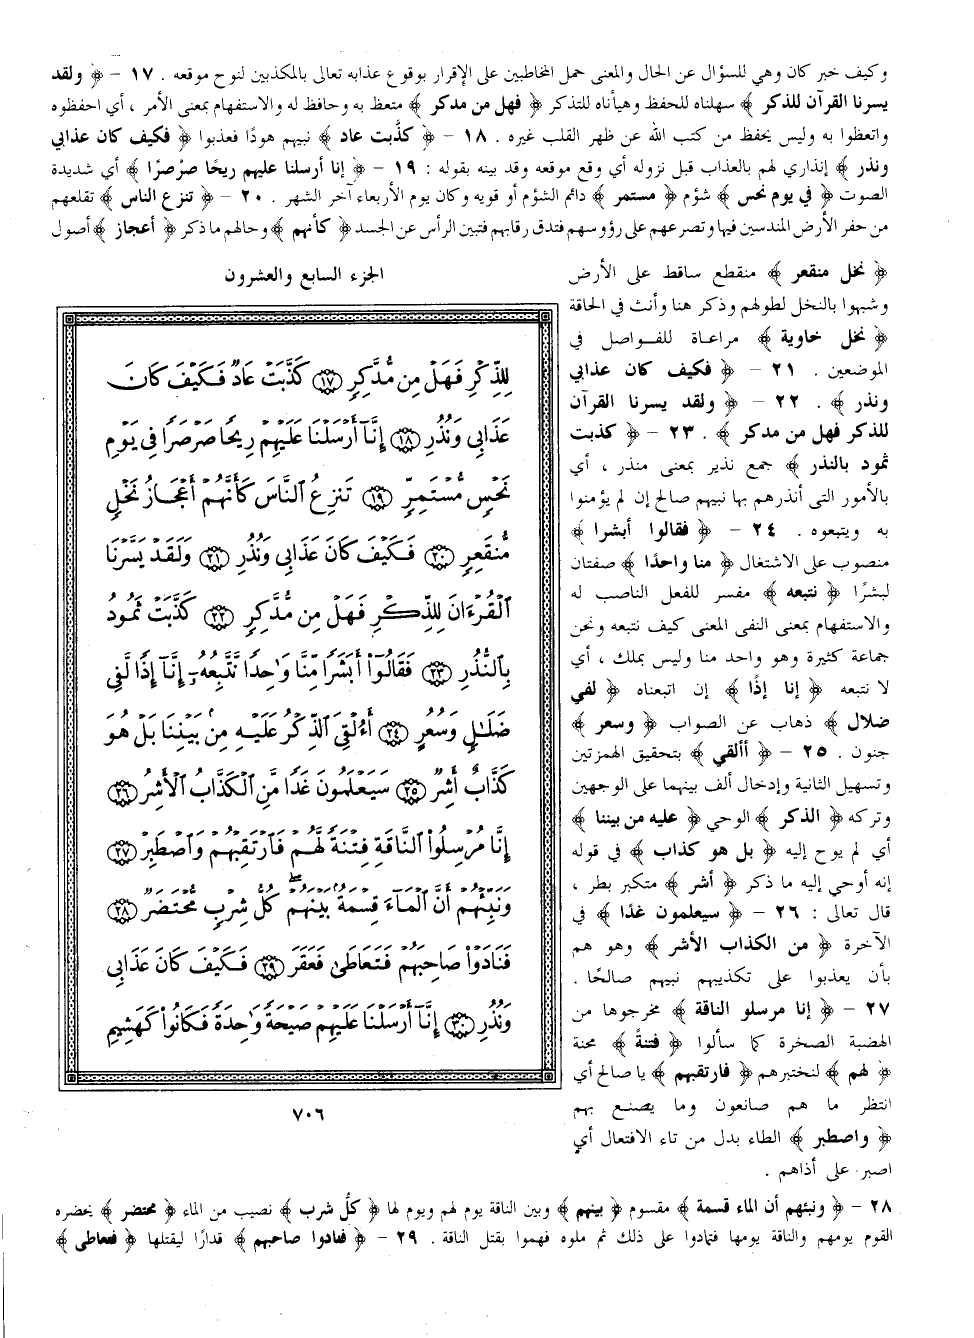 وكيف خبر كان وهي للسؤال عن الحال والمعنى حمل المخاطبين على الإقرار بوقوع عذابه تعالى بالمكذبين لنوح موقعه . ١٧ - ﴿ ولقد
يسرنا القرآن للذكر ﴾ سهلناه للحفظ وهيأناه للتذكر ﴿ فهل من مدكر ﴾ متعظ به وحافظ له والاستفهام بمعنى الأمر ، أي احفظوه
واتعظوا به وليس يحفظ من كتب الله عن ظهر القلب غيره . ١٨ - ﴿ كذَّبت عاد ﴾ نبيهم هودًا فعذبوا ﴿ فكيف كان عذابي
ونذر ﴾ إنذاري لهم بالعذاب قبل نزوله أي وقع موقعه وقد بينه بقوله : ١٩ - ﴿ إنا أرسلنا عليهم ريحًا صرْصرًا ﴾ أي شديدة
الصوت ﴿ في يوم نحس ﴾ شؤم ﴿ مستمر ﴾ دائم الشؤم أو قويه وكان يوم الأربعاء آخر الشهر . ٢٠ - ﴿ تنزع الناس ﴾ تقلعهم
من حفر الأرض المندسين فيها وتصرعهم على رؤوسهم فتدق رقابهم فتبين الرأس عن الجسد ﴿ كأنهم ﴾ وحالهم ما ذكر ﴿ أعجاز ﴾ أصول
﴿ نخل منقعر ﴾ منقطع ساقط على الأرض
وشبهوا بالنخل لطولهم وذكر هنا وأنث في الحاقة
﴿ نخل خاوية ﴾ مراعاة للفواصل في
الموضعين . ٢١ - ﴿ فكيف كان عذابي
ونذر ﴾ . ٢٢ - ﴿ ولقد يسرنا القرآن
للذكر فهل من مدكر ﴾ . ٢٣ - ﴿ كذبت
ثمود بالنذر ﴾ جمع نذير بمعنى منذر ، أي
بالأمور التي أنذرهم بها نبيهم صالح إن لم يؤمنوا
به ويتبعوه . ٢٤ - ﴿ فقالوا أبشرا ﴾
منصوب على الاشتغال ﴿ منا واحدًا ﴾ صفتان
لبشرًا ﴿ نتبعه ﴾ مفسر للفعل الناصب له
والاستفهام بمعنى النفي المعنى كيف نتبعه ونحن
جماعة كثيرة وهو واحد منا وليس بملك ، أي
لا نتبعه ﴿ إنا إذًا ﴾ إن اتبعناه ﴿ لفي
ضلال ﴾ ذهاب عن الصواب ﴿ وسعر ﴾
جنون . ٢٥ - ﴿ أألقي ﴾ بتحقيق الهمزتين
وتسهيل الثانية وإدخال ألف بينهما على الوجهين
وتركه ﴿ الذكر ﴾ الوحي ﴿ عليه من بيننا ﴾
أي لم يوح إليه ﴿ بل هو كذاب ﴾ في قوله
إنه أوحي إليه ما ذكر ﴿ أشر ﴾ متكبر بطر ،
قال تعالى : ٢٦ - ﴿ سيعلمون غدًا ﴾ في
الآخرة ﴿ من الكذاب الأشر ﴾ وهو هم
بأن يعذبوا على تكذيبهم نبيهم صالحًا .
٢٧ - ﴿ إنا مرسلو الناقة ﴾ مخرجوها من
الهضبة الصخرة كما سألوا ﴿ فتنةً ﴾ محنة
﴿ لهم ﴾ لنختبرهم ﴿ فارتقبهم ﴾ يا صالح أي
انتظر ما هم صانعون وما يصنع بهم
﴿ واصطبر ﴾ الطاء بدل من تاء الافتعال أي
اصبر على أذاهم .
الجزء السابع والعشرون
لِلذِّكْرِ فَهَلْ مِن مُّدَّكِرٍ ١٧ كَذَّبَتْ عَادٌ فَكَيْفَ كَانَ
عَذَابِي وَنُذُرِ ١٨ إِنَّآ أَرْسَلْنَا عَلَيْهِمْ رِيحًا صَرْصَرًا فِي يَوْمِ
نَحْسٍ مُّسْتَمِرٍّ ١٩ تَنزِعُ ٱلنَّاسَ كَأَنَّهُمْ أَعْجَازُ نَخْلٍ
مُّنقَعِرٍ ٢٠ فَكَيْفَ كَانَ عَذَابِي وَنُذُرِ ٢١ وَلَقَدْ يَسَّرْنَا
ٱلْقُرْءَانَ لِلذِّكْرِ فَهَلْ مِن مُّدَّكِرٍ ٢٢ كَذَّبَتْ ثَمُودُ
بِٱلنُّذُرِ ٢٣ فَقَالُوٓا۟ أَبَشَرًا مِّنَّا وَٰحِدًا نَّتَّبِعُهُۥٓ إِنَّآ إِذًا لَّفِي
ضَلَٰلٍ وَسُعُرٍ ٢٤ أَءُلْقِيَ ٱلذِّكْرُ عَلَيْهِ مِنۢ بَيْنِنَا بَلْ هُوَ
كَذَّابٌ أَشِرٌ ٢٥ سَيَعْلَمُونَ غَدًا مَّنِ ٱلْكَذَّابُ ٱلْأَشِرُ ٢٦
إِنَّا مُرْسِلُوا۟ ٱلنَّاقَةِ فِتْنَةً لَّهُمْ فَٱرْتَقِبْهُمْ وَٱصْطَبِرْ ٢٧
وَنَبِّئْهُمْ أَنَّ ٱلْمَآءَ قِسْمَةٌۢ بَيْنَهُمْ كُلُّ شِرْبٍ مُّحْتَضَرٌ ٢٨
فَنَادَوْا۟ صَاحِبَهُمْ فَتَعَاطَىٰ فَعَقَرَ ٢٩ فَكَيْفَ كَانَ عَذَابِي
وَنُذُرِ ٣٠ إِنَّآ أَرْسَلْنَا عَلَيْهِمْ صَيْحَةً وَٰحِدَةً فَكَانُوا۟ كَهَشِيمِ
٧٠٦
٢٨ - ﴿ ونبئهم أن الماء قسمة ﴾ مقسوم ﴿ بينهم ﴾ وبين الناقة يوم لهم ويوم لها ﴿ كلُّ شرب ﴾ نصيب من الماء ﴿ محتضر ﴾ يحضره
القوم يومهم والناقة يومها فتمادوا على ذلك ثم ملوه فهموا بقتل الناقة . ٢٩ - ﴿ فنادوا صاحبهم ﴾ قدارًا ليقتلها ﴿ فتعاطى ﴾